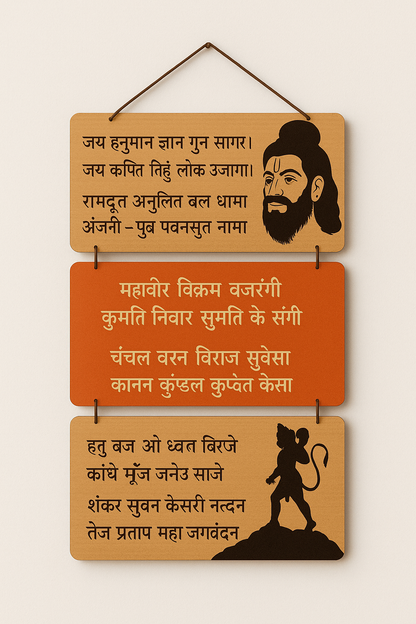 जय हनुमान ज्ञान गुन सागर।
जय कपित तिहुं लोक उजागा।
रामदूत अनुलित बल धामा
अंजनी – पुब पवनसुत नामा
महावीर विक्रम वजरंगी
कुमति निवार सुमति के संगी
चंचल वरन विराज सुवेसा
कानन कुंण्डल कुप्वेत केसा
हतु बज ओ ध्वत बिरजे
कांधे मूँज जनेउ साजे
शंकर सुवन केसरी नत्दन
तेज प्रताप महा जगवंदन